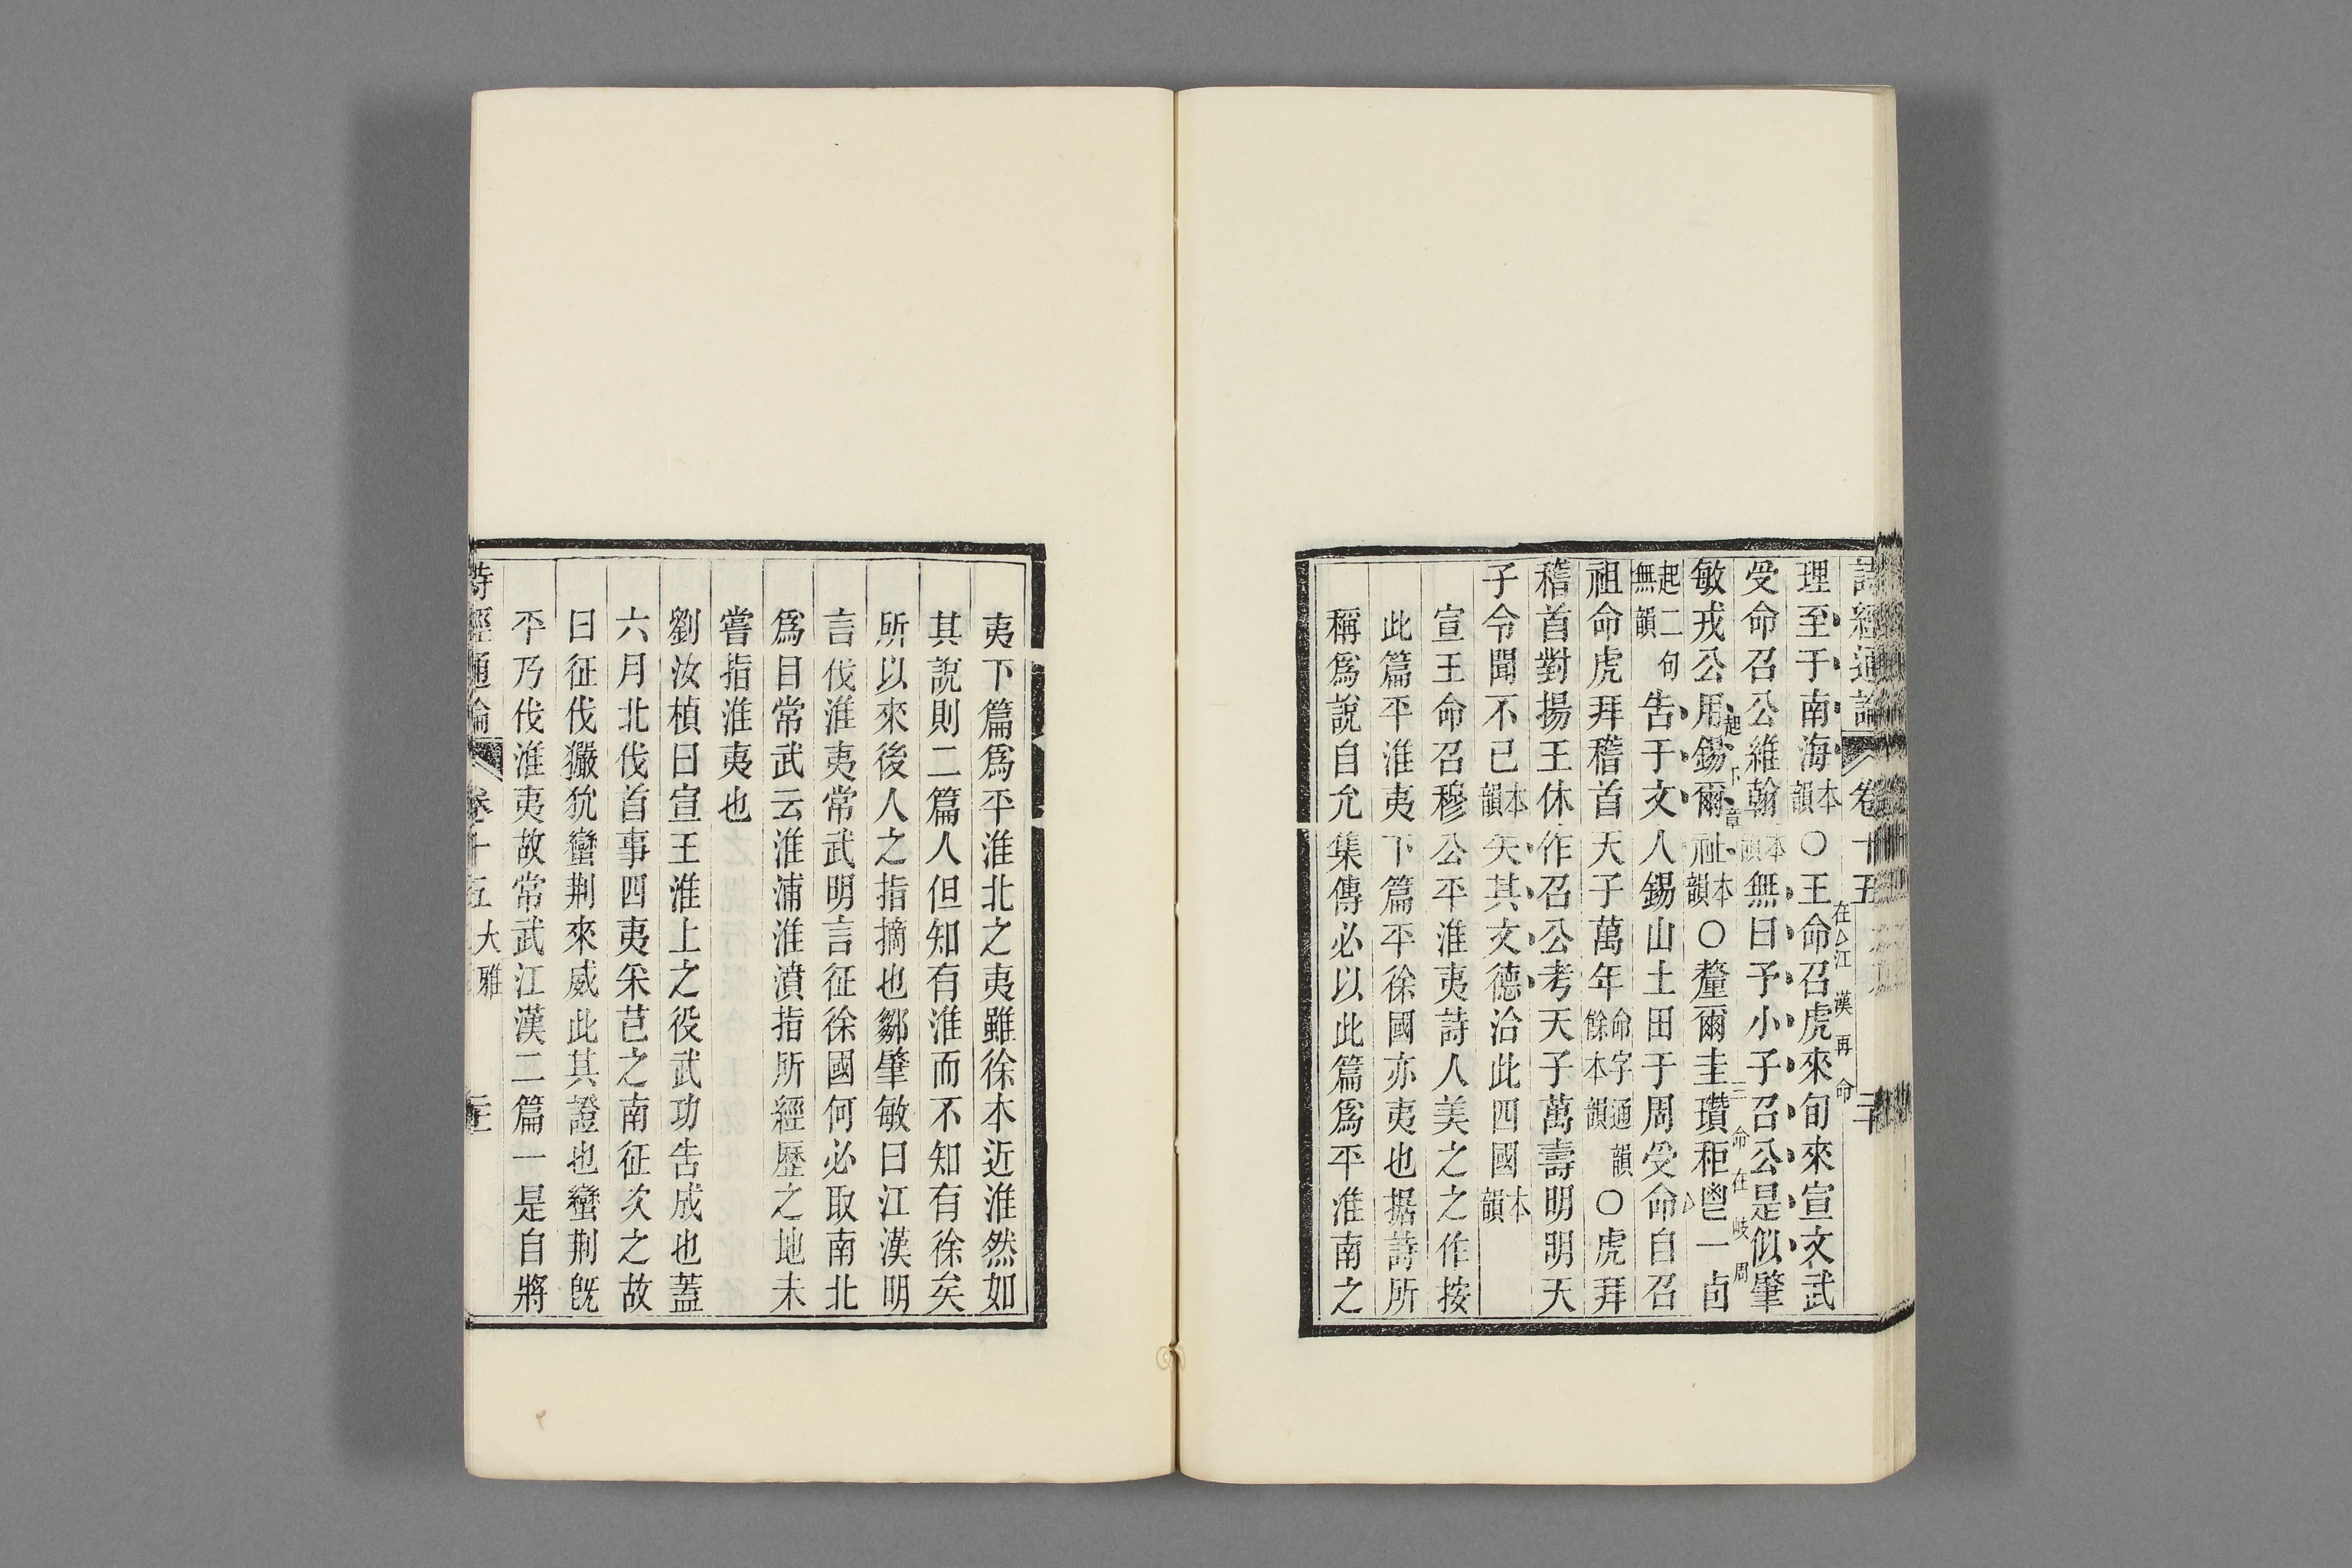 詩經通論 卷十五
理至于南海本韻○王命召虎來旬來宣文武
在江漢再命
受命召公維翰本韻無曰予小子召公是似肇
起下章
三命在岐周
敏戎公用錫爾祉本韻○釐爾圭瓚秬鬯一卣
起二句無韻告于文人錫山土田于周受命自召
祖命虎拜稽首天子萬年命字通韻餘本韻○虎拜
稽首對揚王休作召公考天子萬壽明明天
子令聞不已本韻矢其文德洽此四國本韻
宣王命召穆公平淮夷詩人美之之作按
此篇平淮夷下篇平徐國亦夷也据詩所
稱爲說自允集傳必以此篇爲平淮南之
夷下篇爲平淮北之夷雖徐本近淮然如
其說則二篇人但知有淮而不知有徐矣
所以來後人之指摘也鄒肇敏曰江漢明
言伐淮夷常武明言征徐國何必取南北
爲目常武云淮浦淮濆指所經歷之地未
嘗指淮夷也
劉汝楨曰宣王淮上之役武功告成也蓋
六月北伐首事四夷采芑之南征次之故
曰征伐玁狁蠻荆來威此其證也蠻荆旣
平乃伐淮夷故常武江漢二篇一是自將
詩經通論 卷十五 大雅